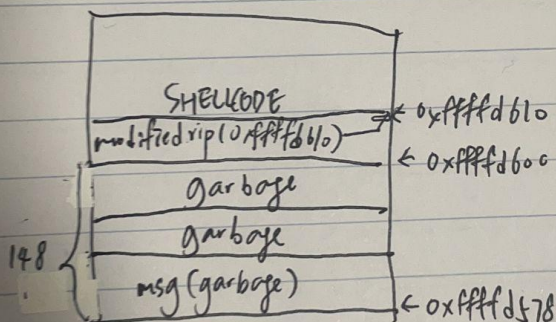 SHELLCODE
← 0xffffd610
modified rip (0xffffd610)
← 0xffffd60c
garbage
garbage
148
msg (garbage)
← 0xffffd578